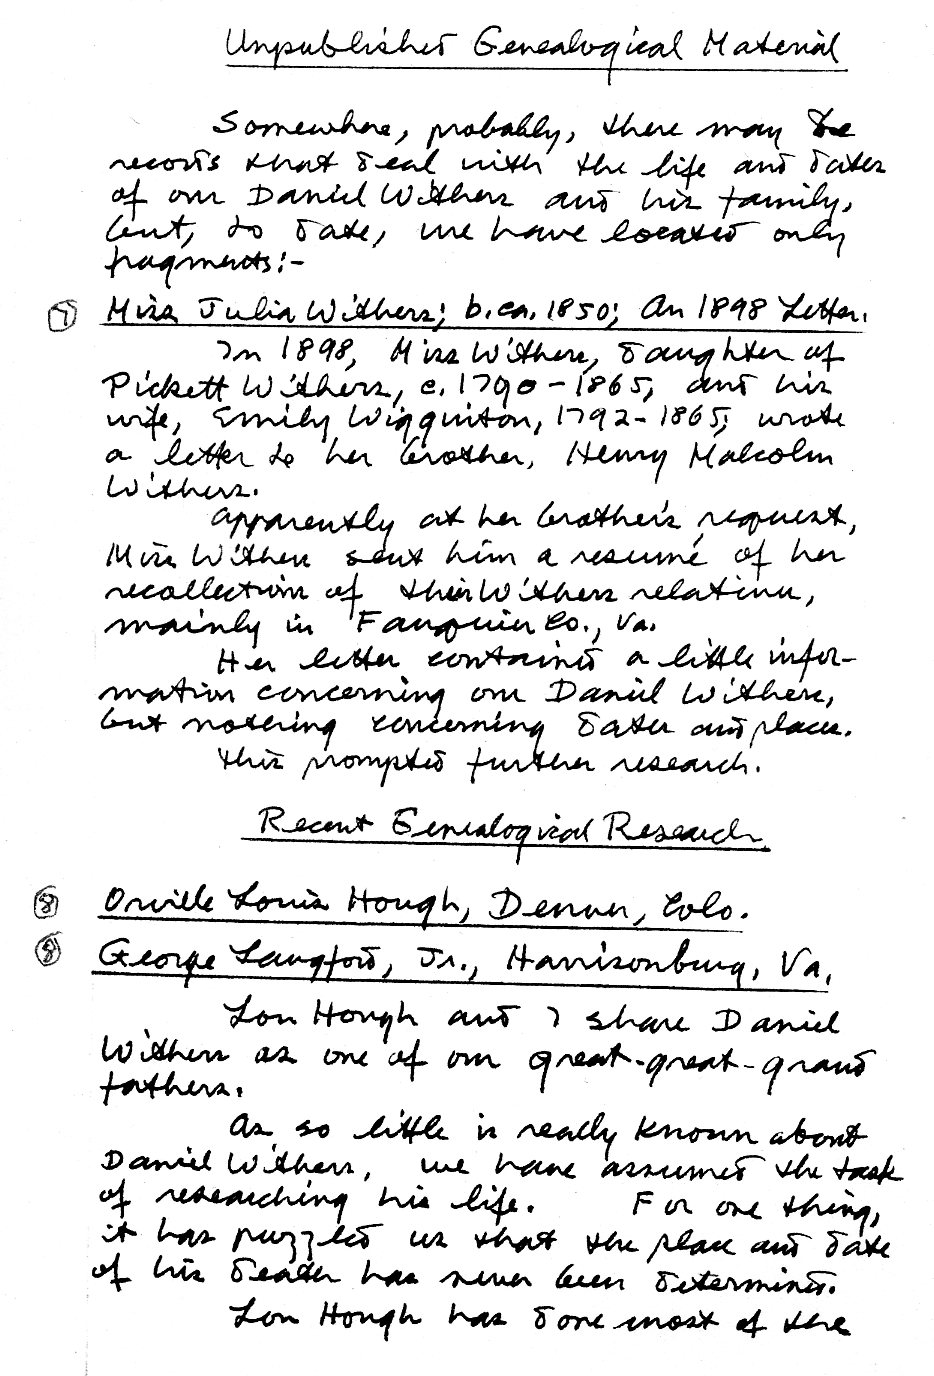 Unpublished Genealogical Material
Somewhere, probably, there may be
records that deal with the life and dates
of our Daniel Withers and his family,
but, to date, we have located only
fragments:-
⑦ Miss Julia Withers; b. ca. 1850; An 1898 Letter.
In 1898, Miss Withers, daughter of
Pickett Withers, c. 1790-1865, and his
wife, Emily Wigginton, 1792-1865, wrote
a letter to her brother, Henry Malcolm
Withers.
Apparently at her brother's request,
Miss Withers sent him a resumé of her
recollection of their Withers relatives,
mainly in Fauquier Co., Va.
Her letter contained a little infor-
mation concerning our Daniel Withers,
but nothing concerning dates and places.
This prompted further research.
Recent Genealogical Research
⑧ Orville Louis Hough, Denver, Colo.
⑧ George Langford, Jr., Harrisonburg, Va.
Lou Hough and I share Daniel
Withers as one of our great-great-grand
fathers.
As so little is really known about
Daniel Withers, we have assumed the task
of researching his life. For one thing,
it has puzzled us that the place and date
of his death has never been determined.
Lou Hough has done most of the